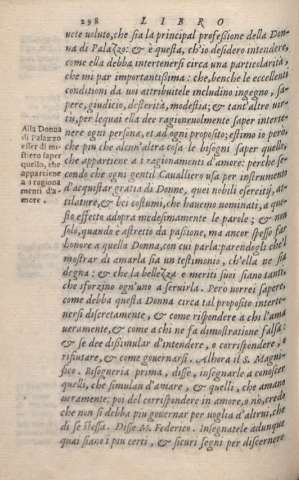 298 LIBRO
uete uoluto, che sia la principal professione della Don-
na di Palazzo: & è questa, ch'io desidero intendere,
come ella debba intertenersi circa una particolarità,
che mi par importantissima: che, benche le eccellenti
conditioni da uoi attribuitele includino ingegno, sa-
pere, giudicio, desterità, modestia; & tant'altre uir-
tù, per lequai ella dee ragioneuolmente saper interte-
nere ogni persona, et ad ogni proposito; estimo io però,
che piu che alcun'altra cosa le bisogni saper quello,
che appartiene a i ragionamenti d'amore: perche se-
condo che ogni gentil Caualliero usa per instrumento
d'acquistar gratia di Donne, quei nobili esercitij, at-
tilature, & bei costumi, che hauemo nominati, a que-
sto effetto adopra medesimamente le parole; & non
solo, quando è astretto da passione, ma ancor spesso far
honore a quella Donna, con cui parla: parendogli che'l
mostrar di amarla sia un testimonio, ch'ella ne sia
degna: & che la bellezza e meriti suoi siano tanti,
che sforzino ogn'uno a seruirla. Pero uorrei sapere,
come debba questa Donna circa tal proposito interte-
nersi discretamente, & come rispondere a chi l'ama
ueramente, & come a chi ne fa dimostratione falsa:
& se dee dissimular d'intendere, o corrispondere, o
rifiutare, & come gouernarsi. Alhora il S. Magni-
fico. Bisogneria prima, disse, insegnarle a conoscer
quelli, che simulan d'amare, & quelli, che amano
ueramente: poi del corrispondere in amore, o nò, credo
che non si debba piu gouernar per uoglia d'altrui, che
di se stessa. Disse M. Federico. Insegnatele adunque
quai siano i piu certi, & sicuri segni per discernere
Alla Donna
di Palazzo
esser di mi-
stiero saper
quello, che
appartiene
a i ragiona
menti d'a-
more.